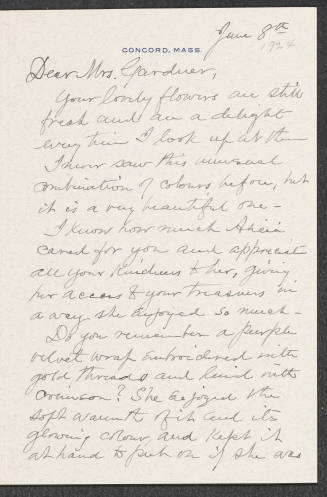 June 8th
1924
CONCORD, MASS.
Dear Mrs. Gardner,
Your lovely flowers are still
fresh and are a delight
every time I look up at them
I never saw this unusual
combination of colours before, but
it is a very beautiful one -
I know how much Alicia
cared for you and appreciated
all your kindness to her, giving
her access to your treasures in
a way she enjoyed so much -
Do you remember a purple
velvet wrap embroidered with
gold threads and lined with
crimson? She enjoyed the
soft warmth of it and its
glowing colour, and kept it
at hand to put on if she was